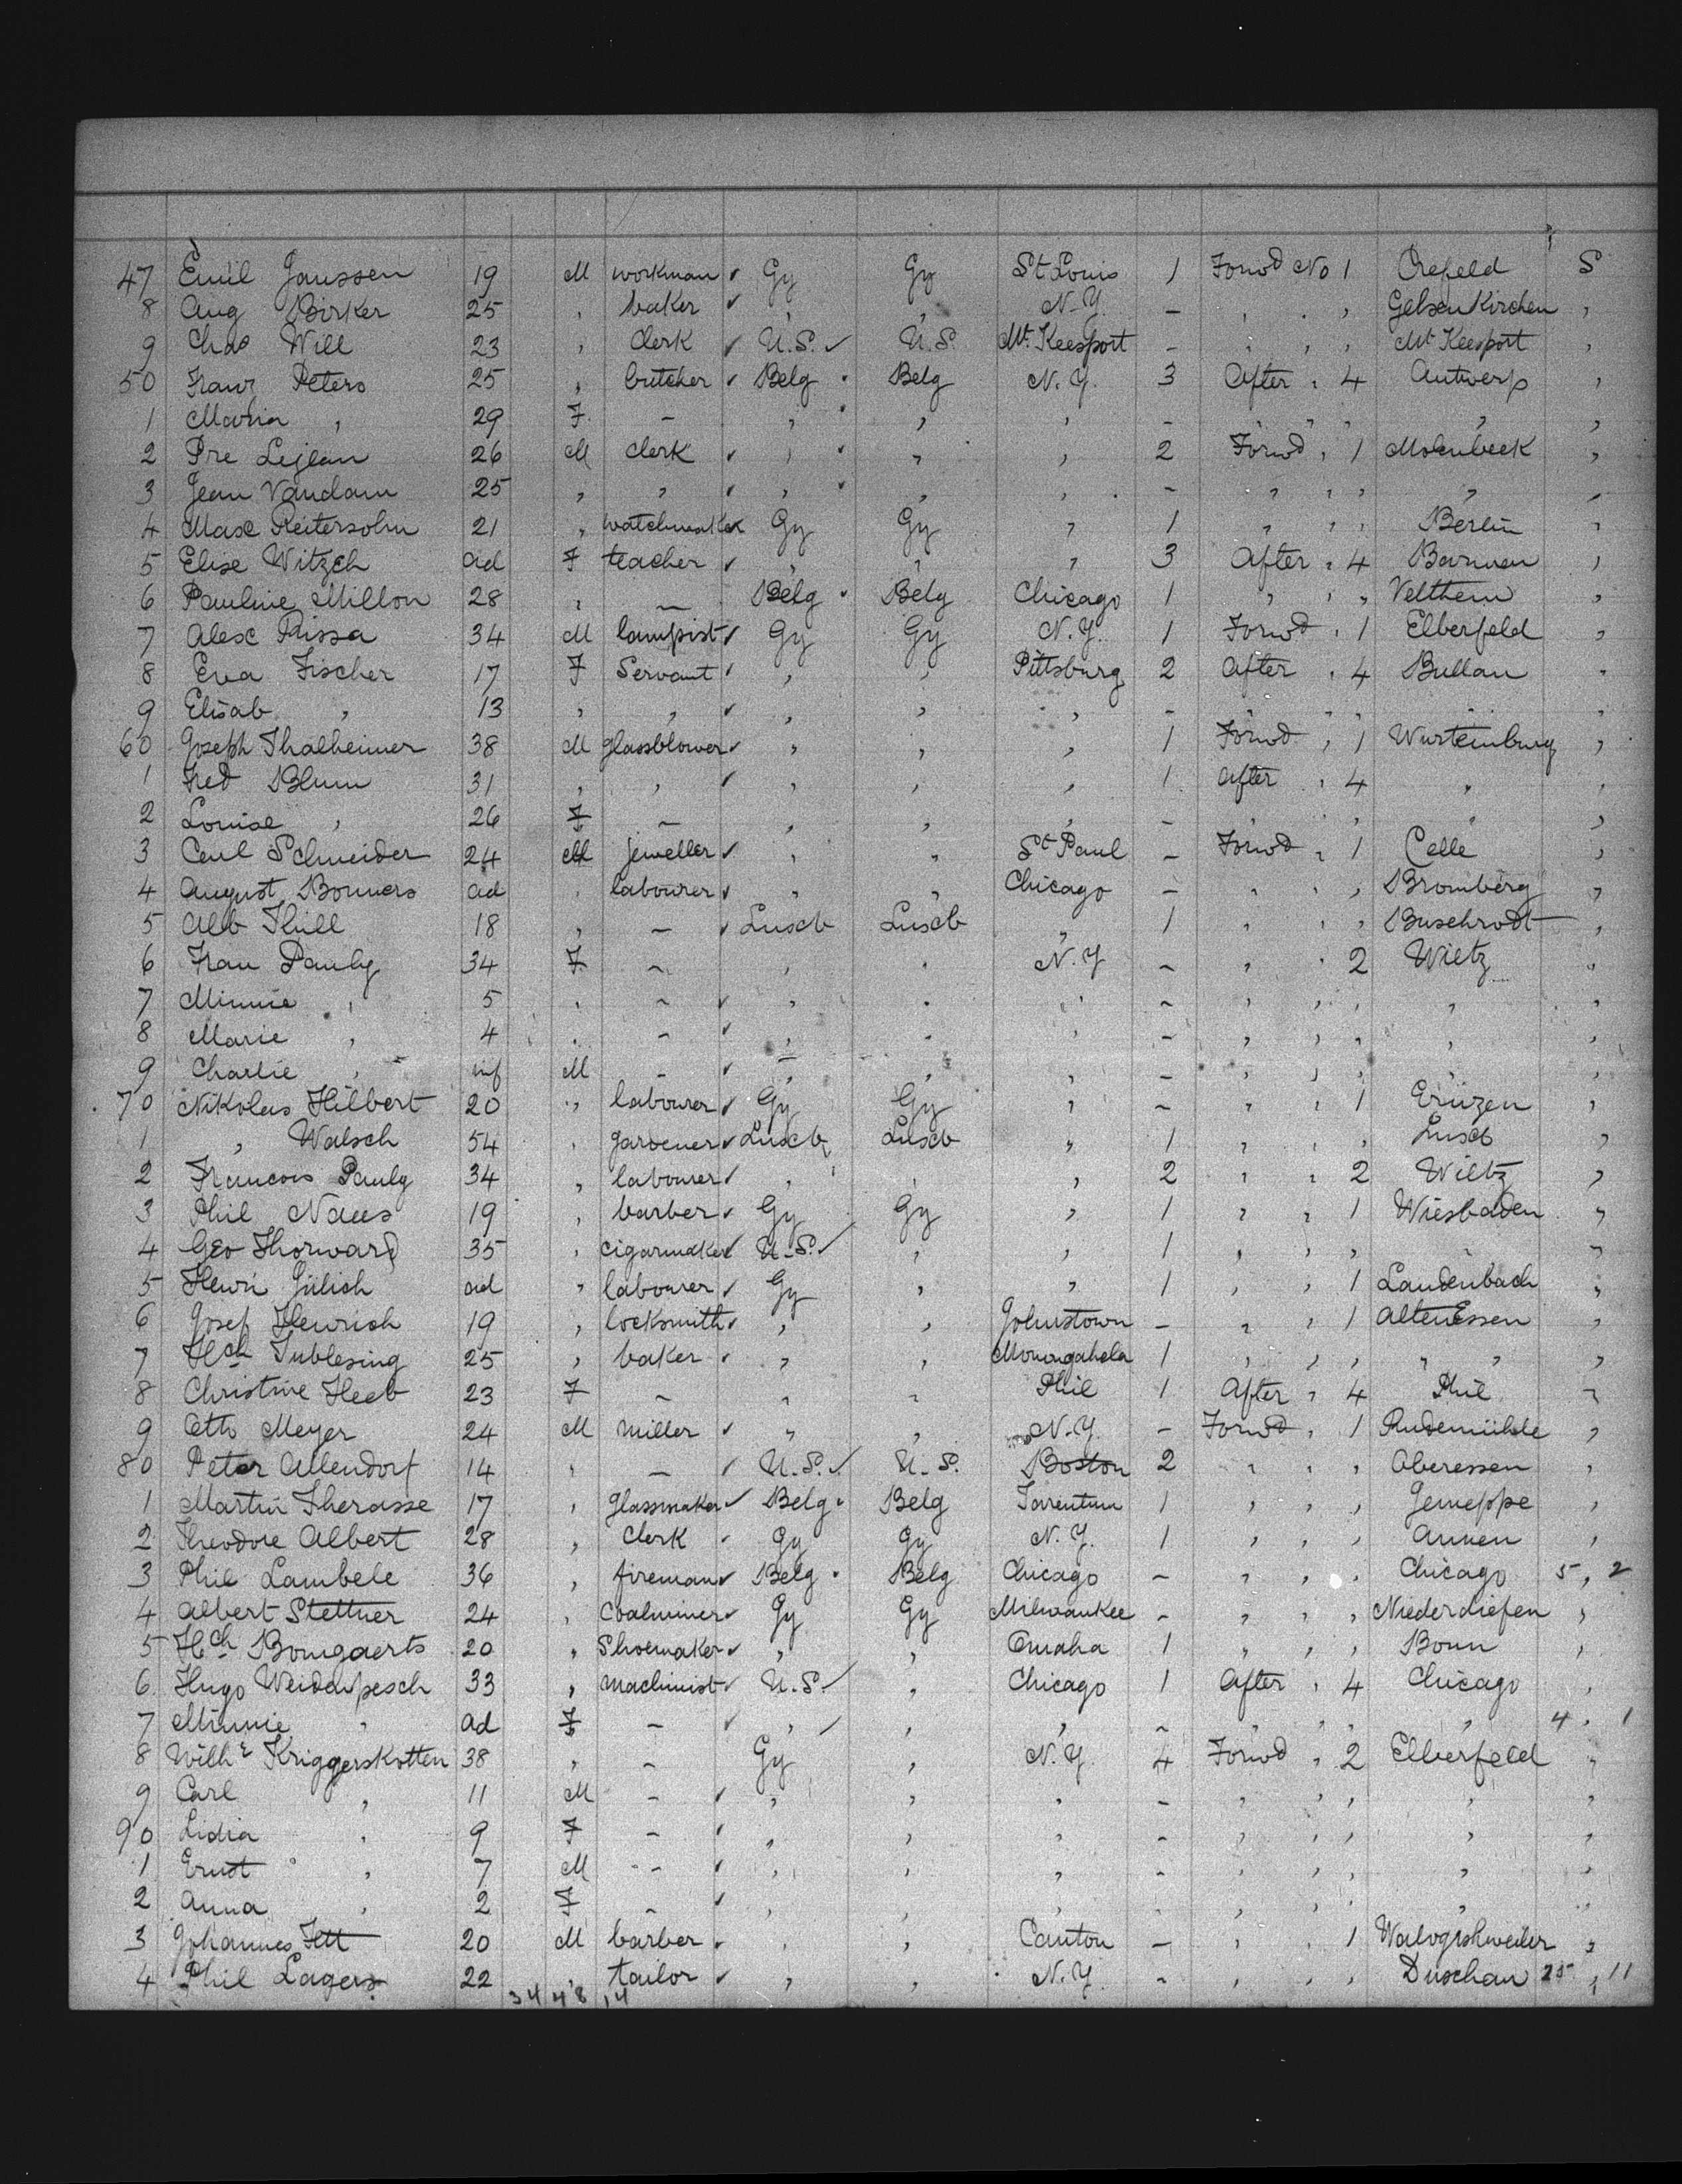 47 Emil Janssen 19 M workman ✓ Gy Gy St Louis 1 Forwd No 1 Crefeld S
8 Aug Birker 25 , baker ✓ , , N.Y. - , , , Gelsenkirchen ,
9 Chas Will 23 , Clerk ✓ U.S. ✓ U.S. Mt. Keesport - , , , Mt Keesport ,
50 Franz Peters 25 , butcher ✓ Belg Belg N.Y. 3 After , 4 Antwerp ,
1 Maria , 29 F - , , , - , , , , ,
2 Pre Lejean 26 M Clerk ✓ , , , 2 Forwd , 1 Molenbeek ,
3 Jean Vandam 25 , , ✓ , , , - , , , , ,
4 Max Reitersohn 21 , watchmaker Gy Gy , 1 , , , Berlin ,
5 Elise Witzch ad F teacher ✓ , , , 3 After , 4 Barmen ,
6 Pauline Millon 28 , - Belg Belg Chicago 1 , , , Velthem ,
7 Alex Rissa 34 M lampist ✓ Gy Gy N.Y. 1 Forwd , 1 Elberfeld ,
8 Eva Fischer 17 F Servant ✓ , , Pittsburg 2 After , 4 Bullau ,
9 Elisab , 13 , , ✓ , , , - , , , , ,
60 Joseph Thalheimer 38 M glassblower ✓ , , , 1 Forwd , 1 Wurtemburg ,
1 Fred Blum 31 , , ✓ , , , 1 After , 4 , ,
2 Louise , 26 F - , , , - , , , , ,
3 Carl Schneider 24 M jeweller ✓ , , St Paul - Forwd , 1 Celle ,
4 August Bonners ad , labourer ✓ , , Chicago - , , , Bromberg ,
5 Alb Thill 18 , - ✓ Luxb Luxb , 1 , , , Buschrodt ,
6 Frau Pauly 34 F - , , N.Y - , , 2 Wiltz ,
7 Minnie , 5 , - ✓ , , , - , , , , ,
8 Marie , 4 , - ✓ , , , - , , , , ,
9 Charlie , inf M - ✓ , , , - , , , , ,
70 Nikolaus Hilbert 20 , labourer ✓ Gy Gy , - , , 1 Eruzen ,
1 , Walsch 54 , gardener ✓ Luxb Luxb , 1 , , , Luxb ,
2 Francois Pauly 34 , labourer ✓ , , , 2 , , 2 Wiltz ,
3 Phil Naus 19 , barber ✓ Gy Gy , 1 , , 1 Wiesbaden ,
4 Geo Thorward 35 , cigarmaker ✓ U.S. ✓ , , 1 , , , , ,
5 Henri Jülich ad , labourer ✓ Gy , , 1 , , 1 Laudenbach ,
6 Josef Henrich 19 , locksmith ✓ , , Johnstown - , , 1 AltenEssen ,
7 Hch Tublesing 25 , baker ✓ , , Monongahela 1 , , , , , ,
8 Christine Heeb 23 F - , , Phil 1 After , 4 Phil ,
9 Otto Meyer 24 M miller ✓ , , N.Y. - Forwd , 1 Rudemühle ,
80 Peter Allendorf 14 , - ✓ U.S. ✓ U.S. Boston 2 , , , Oberessen ,
1 Martin Therasse 17 , glassmaker ✓ Belg Belg Tarentum 1 , , , Jemeppe ,
2 Theodore Albert 28 , Clerk ✓ Gy Gy N.Y. 1 , , , Annen ,
3 Phil Lambele 36 , fireman ✓ Belg Belg Chicago - , , , Chicago 5 , 2
4 Albert Stettner 24 , Coalminer ✓ Gy Gy Milwaukee - , , , Niederdiefen ,
5 Hch Bomgaerts 20 , Shoemaker ✓ , , Omaha 1 , , , Bonn ,
6 Hugo Weidenpesch 33 , machinist ✓ U.S. ✓ , Chicago 1 After , 4 Chicago ,
7 Minnie , ad F - ✓ , ✓ , , - , , , , 4 , 1
8 Wilhe Kriggerskotten 38 , - Gy , N.Y. 4 Forwd , 2 Elberfeld ,
9 Carl , 11 M - ✓ , , , - , , , , ,
90 Lidia , 9 F - ✓ , , , - , , , , ,
1 Ernst , 7 M - ✓ , , , - , , , , ,
2 Anna , 2 F - ✓ , , , - , , , , ,
3 Johannes Jett 20 M barber ✓ , , Canton - , , 1 ,
4 Phil Lagers 22 , tailor ✓ , , N.Y. - , , , Duschau 25 , 11
34 48 14